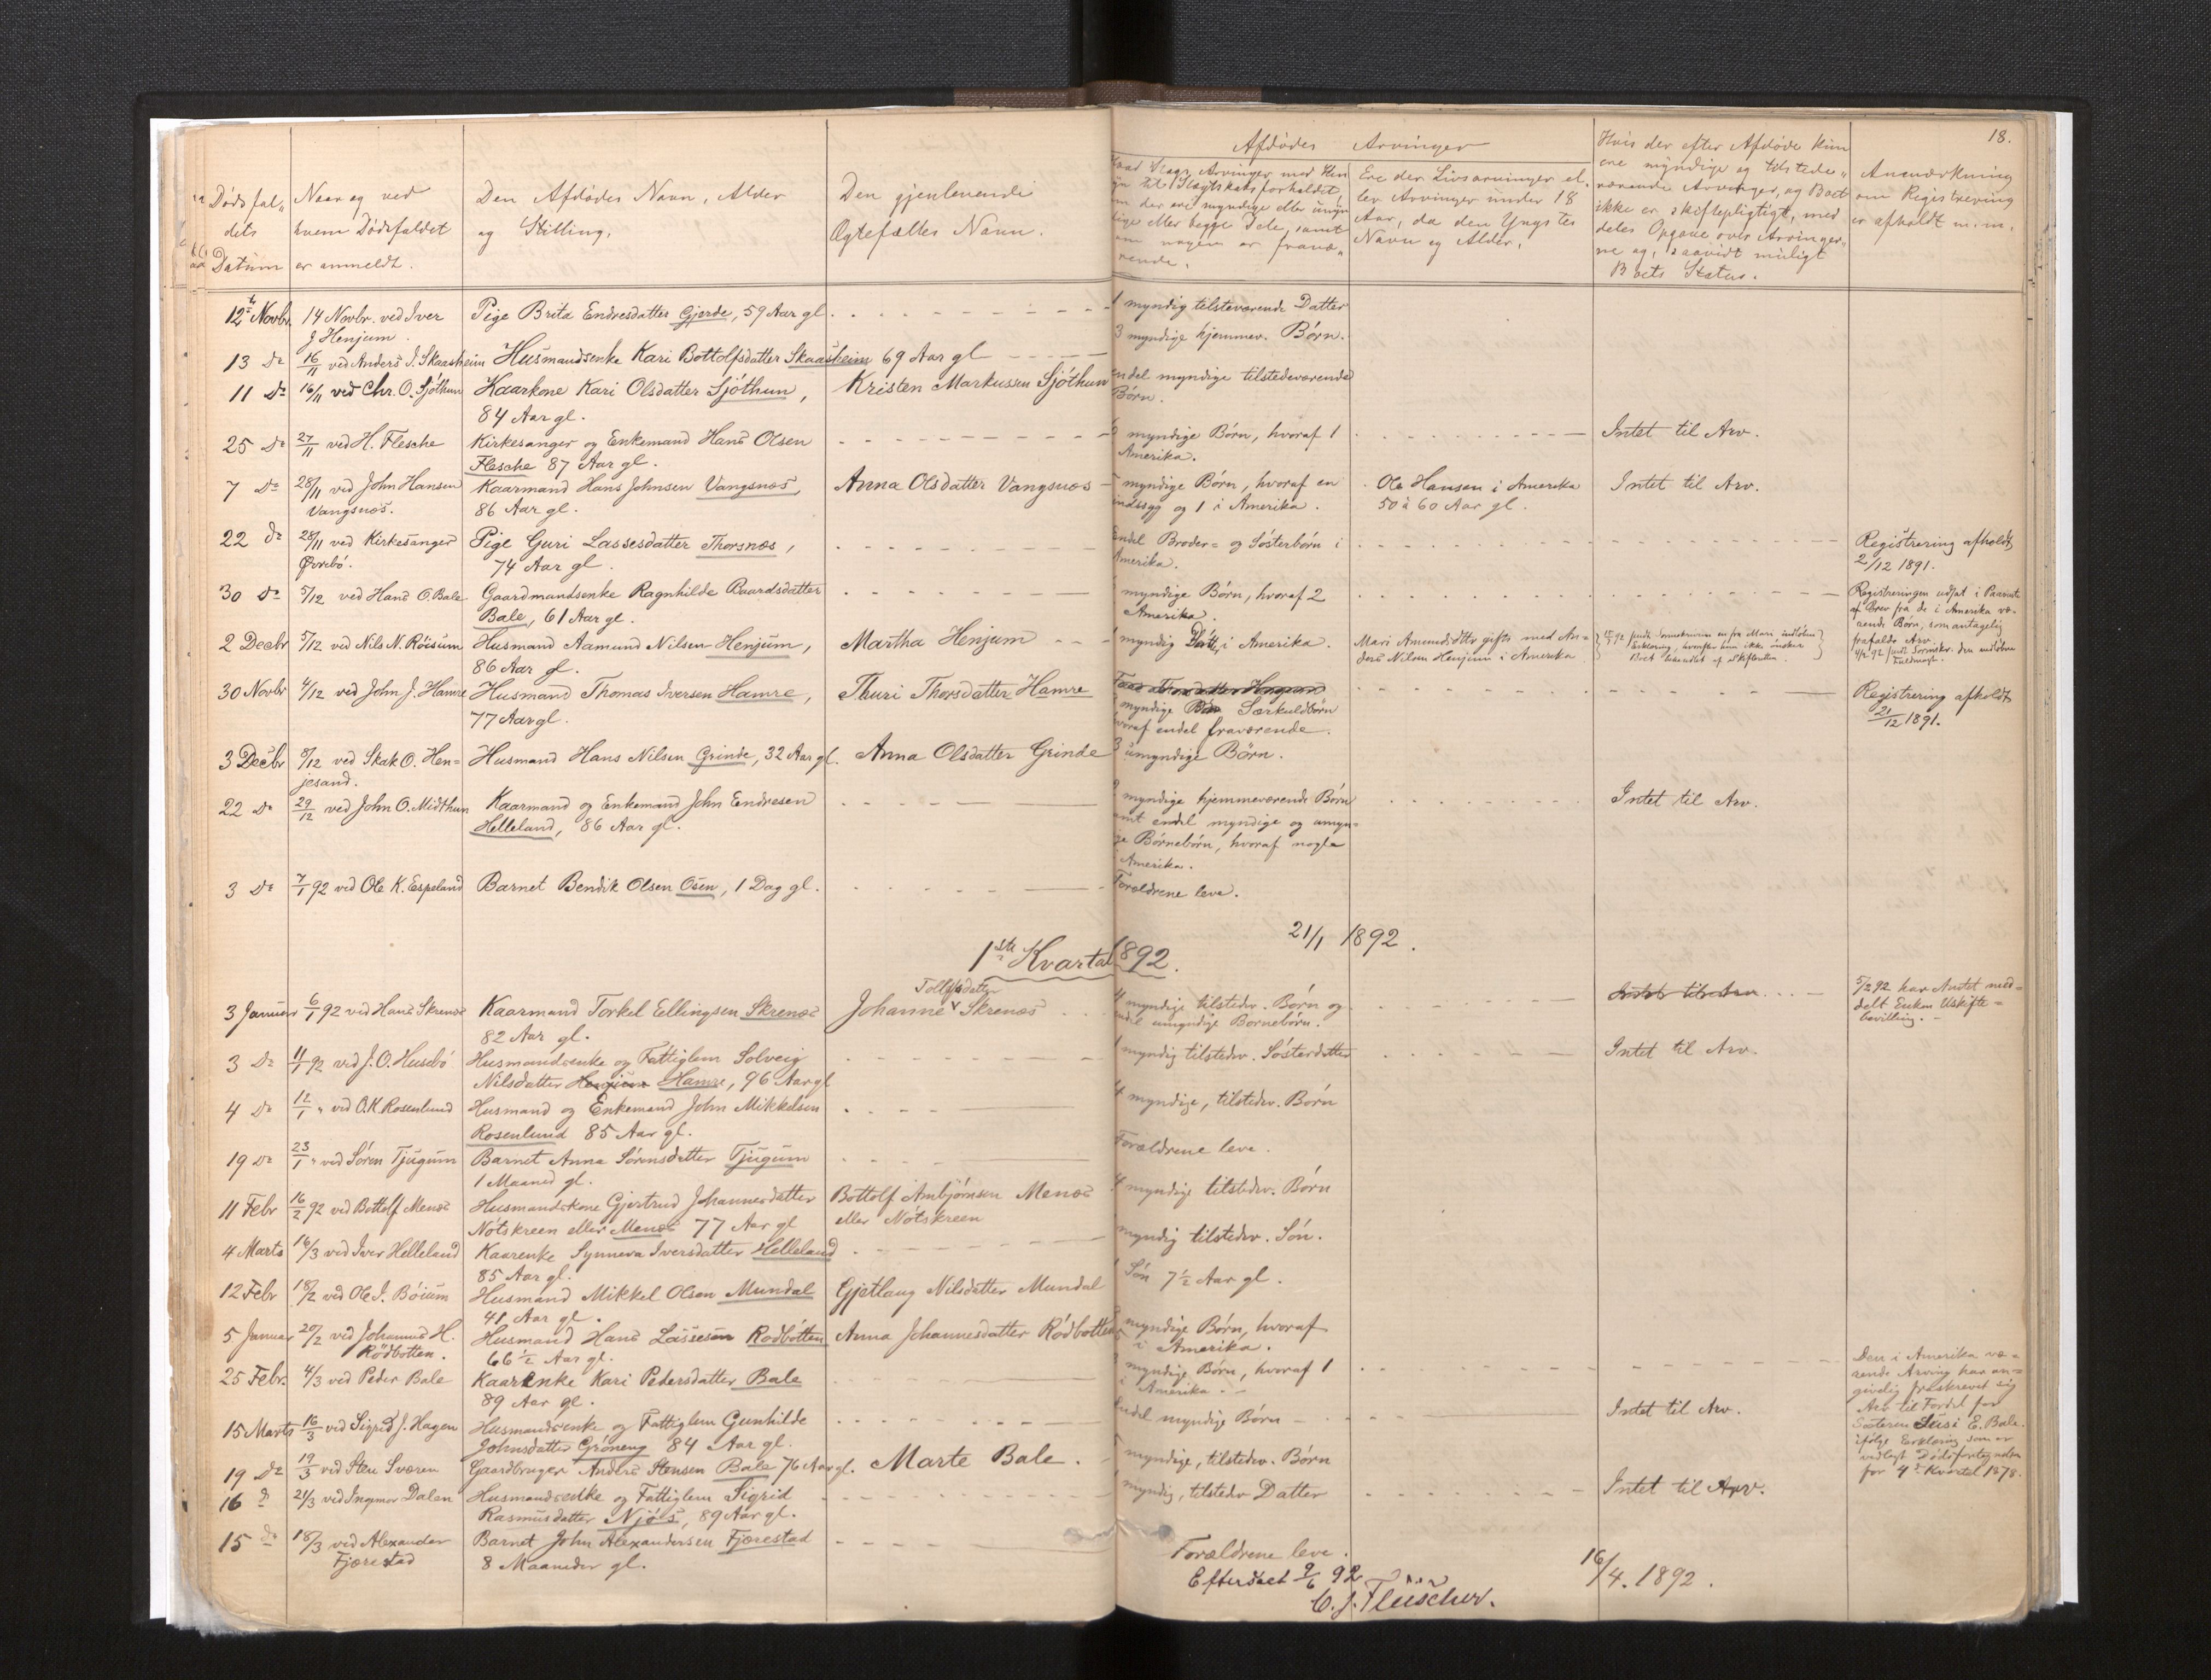 18.
Afdødes Arvinger
Dødsfal„
dets
Datum
Naar og ved
hvem Dødsfaldet
er anmeldt.
Den Afdødes Navn, Alder
og Stilling.
Den gjenlevende
Ægtefælles Navn.
Slags Arvinger med Hen
til Slægtskabsforholdet,
om der ere myndige eller umyn
dige eller begge Dele, samt
om nogen er fravæ„
rende.
Ere der Livsarvinger el.
ler Arvinger under 18
Aar, da den Yngstes
Navn og Alder.
Hvis der efter Afdøde kun
ere myndige og tilstede„
værende Arvinger, og Boet
ikke er skiftepligtigt, med
deles Opgave over Arvinger„
ne og, saavidt muligt
Boets Status.
Anmærkning
om Registrering
er afholdt m.m.
12te Novbr. 14 Novbr. ved Iver Pige Brita Endresdatter Gjerde, 59 Aar gl. 1 myndig tilsteværende Datter
J Henjum.
13 Do 16/11 ved Anders I. Skaasheim Husmandsenke Kari Bottolfsdatter Skaasheim 69 Aar gl 3 myndige hjemmev. Børn.
11 Do 16/11 ved Chr. O. Sjøthun Kaarkone Kari Olsdatter Sjøthun, Kristen Markussen Sjøthun endel myndige tilstedeværende
84 Aar gl. Børn.
25 Do 27/11 ved H. Flesche Kirkesanger og Enkemand Hans Olsen myndige Børn, hvoraf 1 Intet til Arv.
Flesche 87 Aar gl. Amerika.
7 Do 28/11 ved John Hansen Kaarmand Hans Johnsen Vangsnes, Anna Olsdatter Vangsnes myndige Børn, hvoraf en Ole Hansen i Amerika Intet til Arv.
Vangsnes. 86 Aar gl. sindssyg og 1 i Amerika. 50 à 60 Aar gl.
22 do 28/11 ved Kirkesanger Pige Guri Lassesdatter Thorsnæs, Endel Broder= og Søsterbørn i Registrering afholdt
Øvrebø. 74 Aar gl. Amerika. 2/12 1891.
30 Do 5/12 ved Hans O. Bale Gaardmandsenke Ragnhilde Baardsdatter myndige Børn, hvoraf 2 Registreringen udsat i Paavente
Bale, 61 Aar gl. Amerika. af Brev fra de i Amerika væ-
rende Børn, som antagelig
frafalde Arv.
2 Decbr 5/12 ved Nils N. Røisum Husmand Aamund Nilsen Henjum, Martha Henjum 1 myndig Datt. i Amerika. Mari Amundsdttr gift med An-
86 Aar gl. ders Nilsen Henjum i Amerika
30 Novbr 4/12 ved John J. Hamre Husmand Thomas Iversen Hamre, Thuri Thorsdatter Hamre Registrering afholdt
77 Aar gl. myndige Særkuldbørn 21/12 1891.
hvoraf endel fraværende.
3 Decbr 8/12 ved Skak O. Hen= Husmand Hans Nilsen Grinde, 32 Aar gl. Anna Olsdatter Grinde 3 umyndige Børn.
jesand.
22 Do 29/12 ved John O. Midthun Kaarmand og Enkemand John Endresen myndige hjemmeværende Børn Intet til Arv.
Helleland, 86 Aar gl. samt endel myndige og umyn=
dige Børnebørn, hvoraf nogle
i Amerika.
3 Do 7/1 92 ved Ole K. Espeland Barnet Bendik Olsen Osen, 1 Dag gl. Forældrene leve.
21/1 1892.
1ste Kvartal 1892.
3 Januar 6/1 92 ved Hans Skrenæs Kaarmand Torkel Ellingsen Skrenæs Johanne Skrenæs 4 myndige tilstedev. Børn og 5/2 92 har Amtet med=
82 Aar gl. endel umyndige Børnebørn. delt Enken Uskifte=
bevilling.
3 Do 11/1 92 ved J. O. Husebø Husmandsenke og Fattiglem Solveig 1 myndig tilstedev. Søsterdatter Intet til Arv.
Nilsdatter Henjum Hamre, 96 Aar gl
4 Do 12/1 „ ved O. K. Rosenlund Husmand og Enkemand John Mikkelsen 4 myndige, tilstedev. Børn
Rosenlund 85 Aar gl.
19 Do 23/1 „ ved Søren Tjugum Barnet Anna Sørensdatter Tjugum Forældrene leve.
1 Maaned gl.
11 Febr 16/2 92 ved Bottolf Menes Husmandskone Gjertrud Johannesdatter Bottolf Ambjørnsen Menes 4 myndige tilstedev. Børn
Nøtskreen eller Menes 77 Aar gl eller Nøtskreen
4 Marts 16/3 ved Iver Helleland Kaarenke Synneva Iversdatter Helleland myndig tilstedev. Søn.
85 Aar gl.
12 Febr 18/2 ved Ole I. Bøium Husmand Mikkel Olsen Mundal Gjetlaug Nilsdatter Mundal 1 Søn 7½ Aar gl.
41 Aar gl.
5 Januar 20/2 ved Johannes H. Husmand Hans Lassesen Rødbotten Anna Johannesdatter Rødbotten myndige Børn, hvoraf
Rødbotten. 66½ Aar gl. i Amerika.
25 Febr. 4/3 ved Peder Bale Kaarenke Kari Pedersdatter Bale myndige Børn, hvoraf 1 Den i Amerika væ-
89 Aar gl. i Amerika. rende Arving har an=
givelig fraskrevet sig
Arv til Fordel for
Søsteren Susi E. Bale
ifølge Erklæring som er
vedlagt Dødsfortegnelsen
for 4de Kvartal 1878.
15 Marts 16/3 ved Sigrid J. Hagen Husmandsenke og Fattiglem Gunhilde Endel myndige Børn Intet til Arv.
Johnsdatter Grøneng 84 Aar gl.
19 Do 19/3 ved Sten Sværen Gaardbruger Anders Stensen Bale 76 Aar gl. Marte Bale. myndige, tilstedev. Børn
16 do 21/3 ved Ingmar Dalen Husmandsenke og Fattiglem Sigrid 1 myndig, tilstedev Datter Intet til Arv.
Rasmusdatter Njøs, 89 Aar gl.
15 do 18/3 ved Alexander Barnet John Alexandersen Fjærestad Forældrene leve.
Fjærestad 8 Maaneder gl.
16/4. 1892.
Efterseet 9/6 92
C. J. Fleischer.